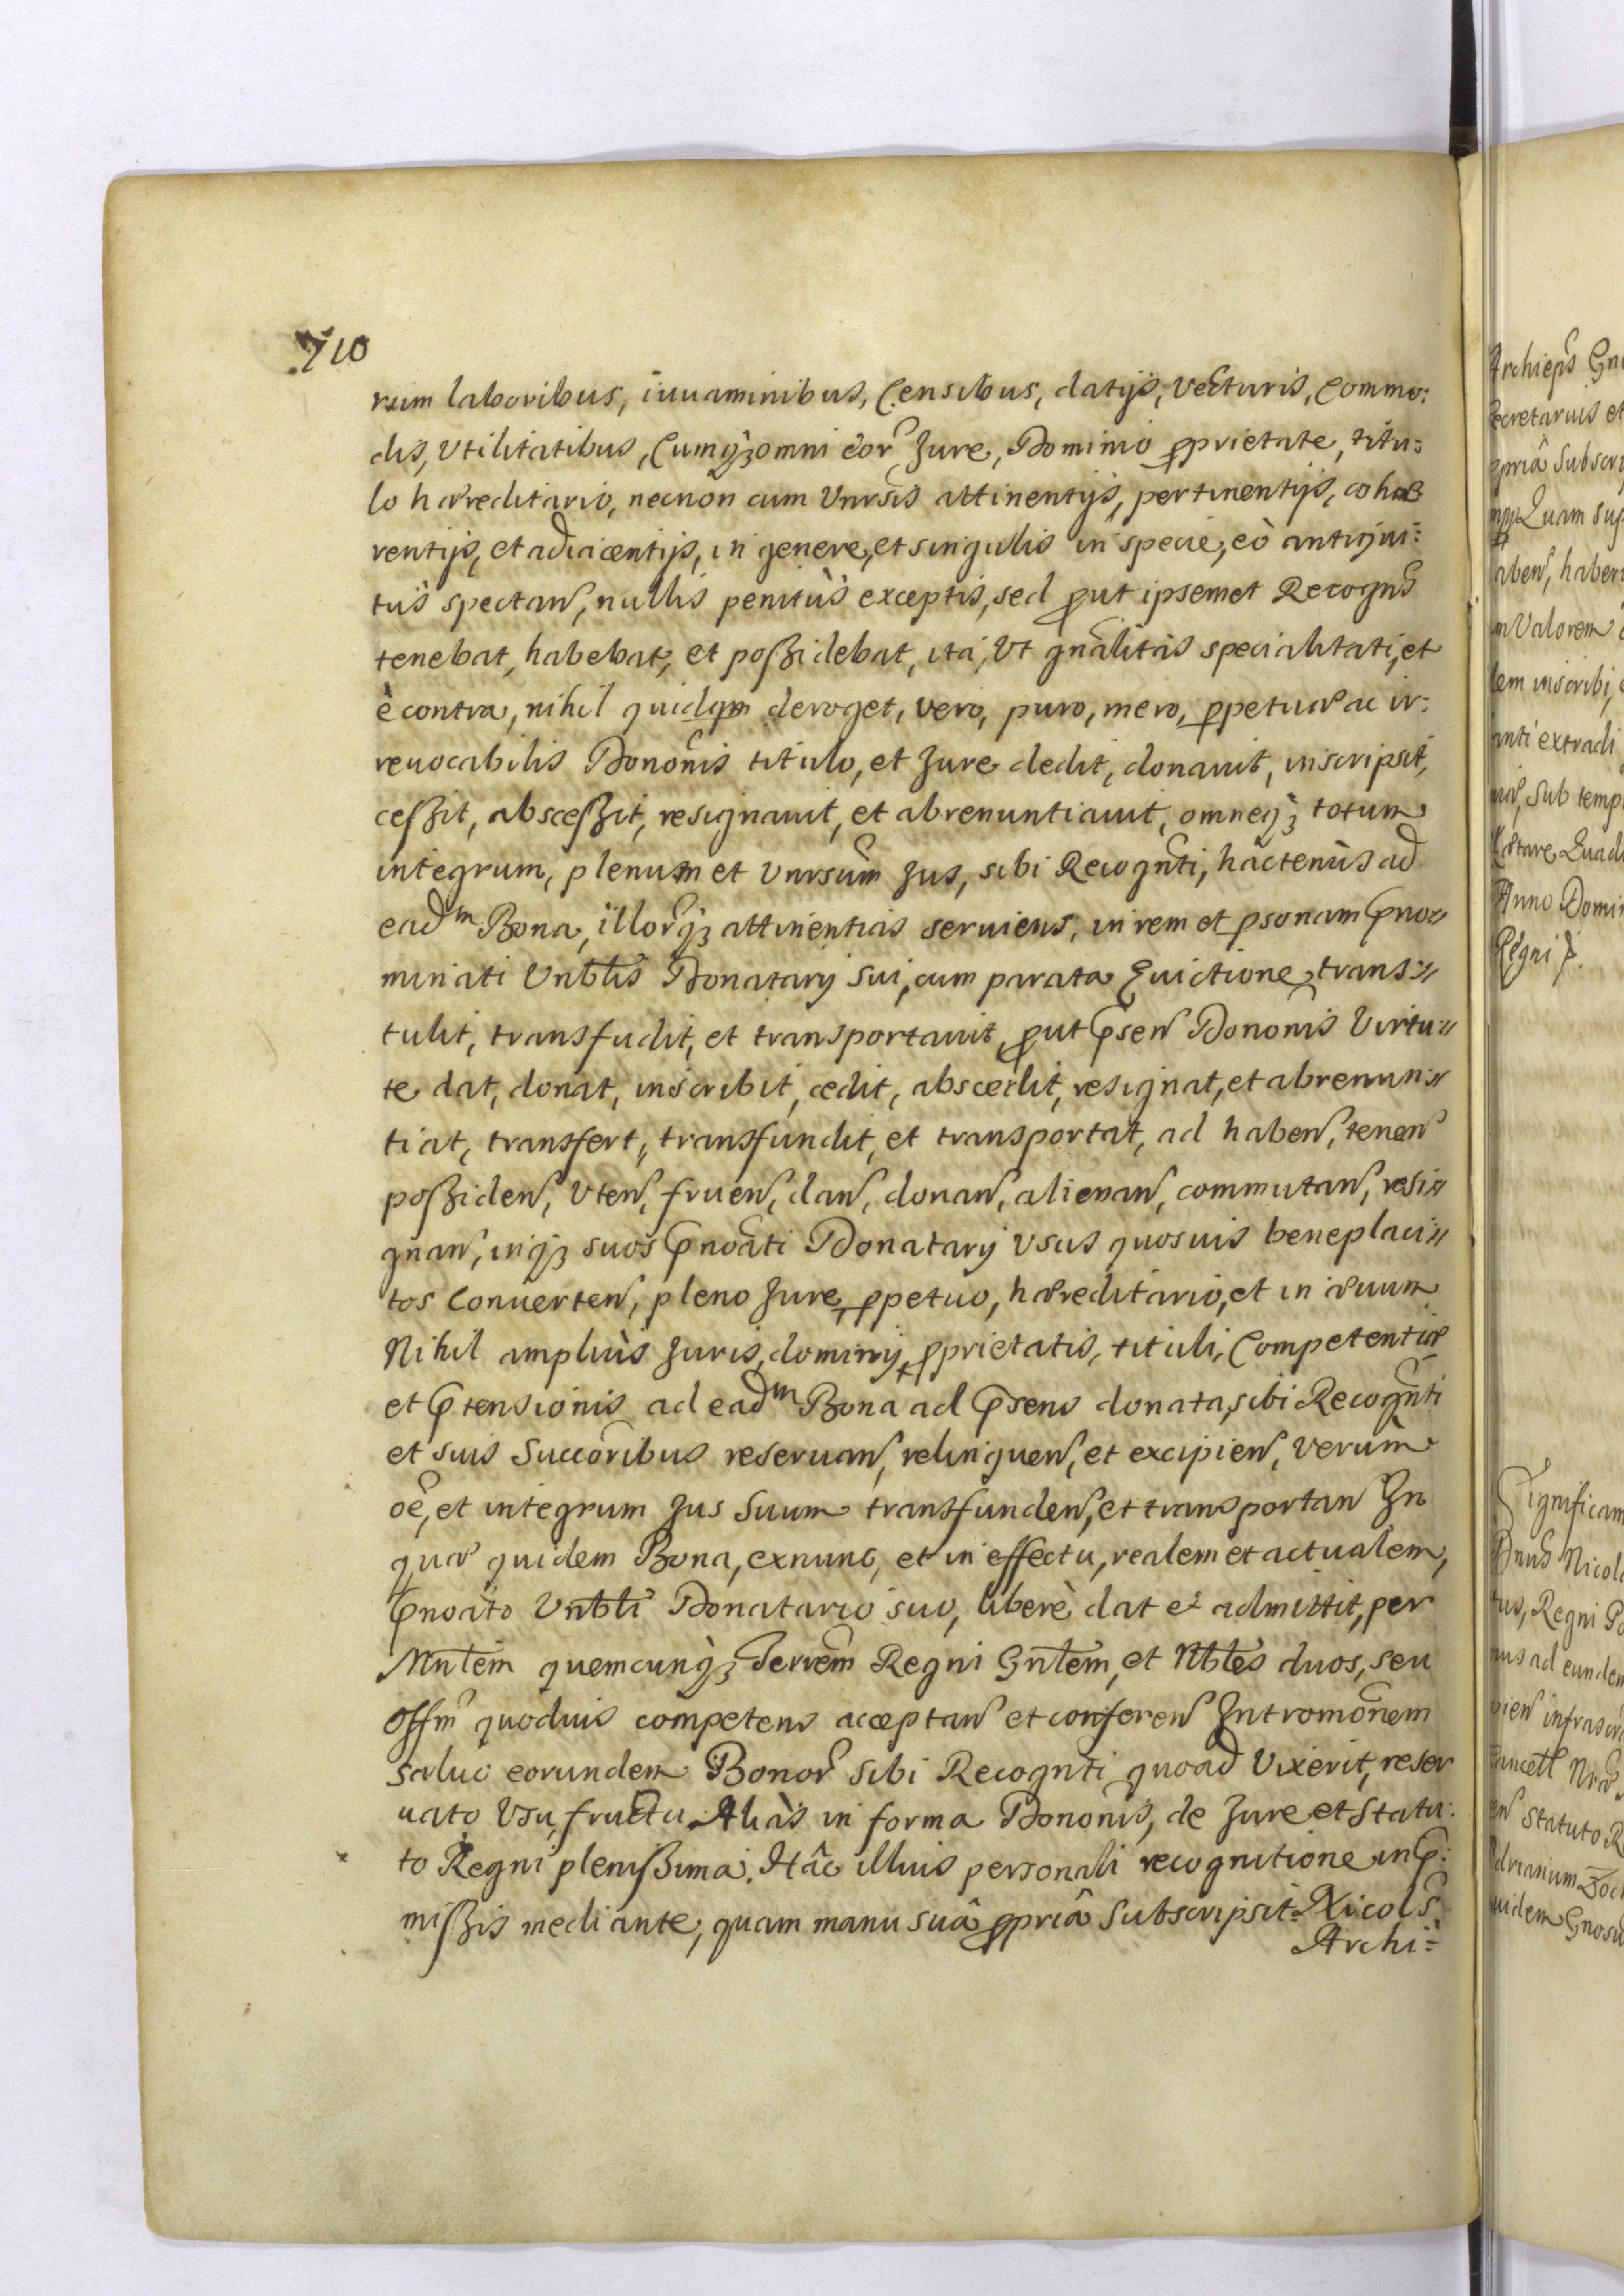 710
rum laboribus, iuuaminibus, Censibus, datijs, Vecturis, Commo:
dis, Vtilitatibus, Cumqȝ omni eor̃ Jure, Dominio ꝓprietate, titu:
lo hæreditario, necnon cum Vnrsis attinentijs, pertinentijs, cohæ
rentijs, et adiacentijs, in genere, et singulis in specie, eò antiqui:
tùs spectan̄, nullis penitùs exceptis, sed ꝓut ipsemet Recogn̄s
tenebat, habebat, et poßidebat, ita, Vt gn̄alitas specialitati, et
è contra, nihil quidqm̄ deroget, vero, puro, mero, ꝑpetuæ ac ir:
reuocabilis Donōnis titulo, et Jure dedit, donauit, inscripsit,
ceßit, absceßit, resignauit, et abrenuntiauit, omneqȝ totum
integrum, plenum et Vnrsum̄ Jus, sibi Recogn̄ti, hactenùs ad
eadm Bona, illor̃qȝ attinentias seruiens, in rem et ꝑsonam p̄no〃
minati Vnb̄lis Donatarij sui, cum parata Euictione, trans〃
tulit, transfudit, et transportauit, ꝓut p̄sen̄ Donōnis Virtu〃
te dat, donat, inscribit, cedit, abscedit, resignat, et abrenun〃
tiat, transfert, transfundit, et transportat, ad haben̄, tenen̄
poßiden̄, Vten̄, fruen̄, dan̄, donan̄, alienan̄, commutan̄, resi〃
gnan̄, inqȝ suos p̄noāti Donatarij Vsus quosuis beneplaci〃
tos Conuerten̄, pleno Jure, ꝑpetuo, hæreditario, et in æuum
Nihil ampliùs Juris, dominij, ꝓprietatis, tituli, Competentiæ
et p̄tensionis ad eadm Bona ad p̄sens donata, sibi Recogn̄ti
et suis Succōribus reseruan̄, relinquen̄, et excipien̄, Verùm
oē, et integrum Jus Suum transfunden̄, et transportan̄ In
quæ quidem Bona, exnunc, et in effectu, realem et actualem,
p̄noāto Vnb̄li Donatario suo, liberè dat et admittit, per
Mn̄tem quemcunqȝ Terrēm Regni Gn̄lem, et Nb̄les duos, seu
Offm̄ quoduis competens acceptan̄ et conferen̄ Intromōnem
saluo eorundem Bonor̃ sibi Recogn̄ti quoad Vixerit, reser
uato Vsu, fructu. Aliàs in forma Donōnis, de Jure et Statu:
to Regni plenißima. Hâc illius personali recognitione in p̄:
mißis mediante, quam manu suâ ꝓpriâ Subscripsit. Nicols̃
Archi=
Archieps̄
Secretarius et
Quam
haben̄, haberi
in Valorem
inscribi,
extradi
Sub temp
Anno Domi
Regni
Significam
Dnus Nicol
Regni
ad eunden
infrascr
Statuto R